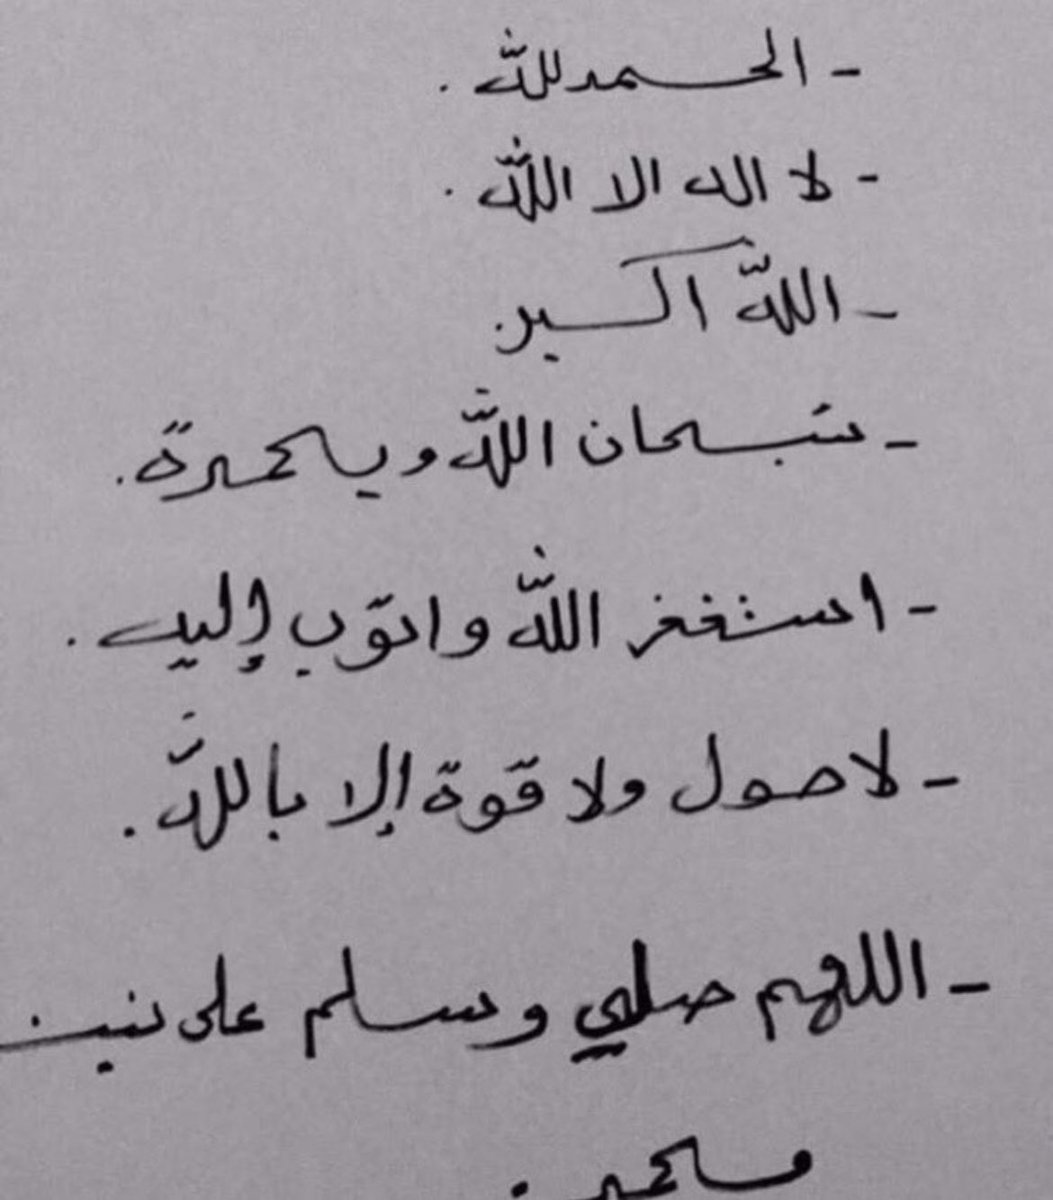 - الحمد لله .
- لا اله الا الله .
- الله اكبر .
- سبحان الله وبحمدة .
- استغفر الله واتوب إليه .
- لاحول ولا قوة إلا بالله .
- اللهم صلي وسلم على نبينا
محمد .